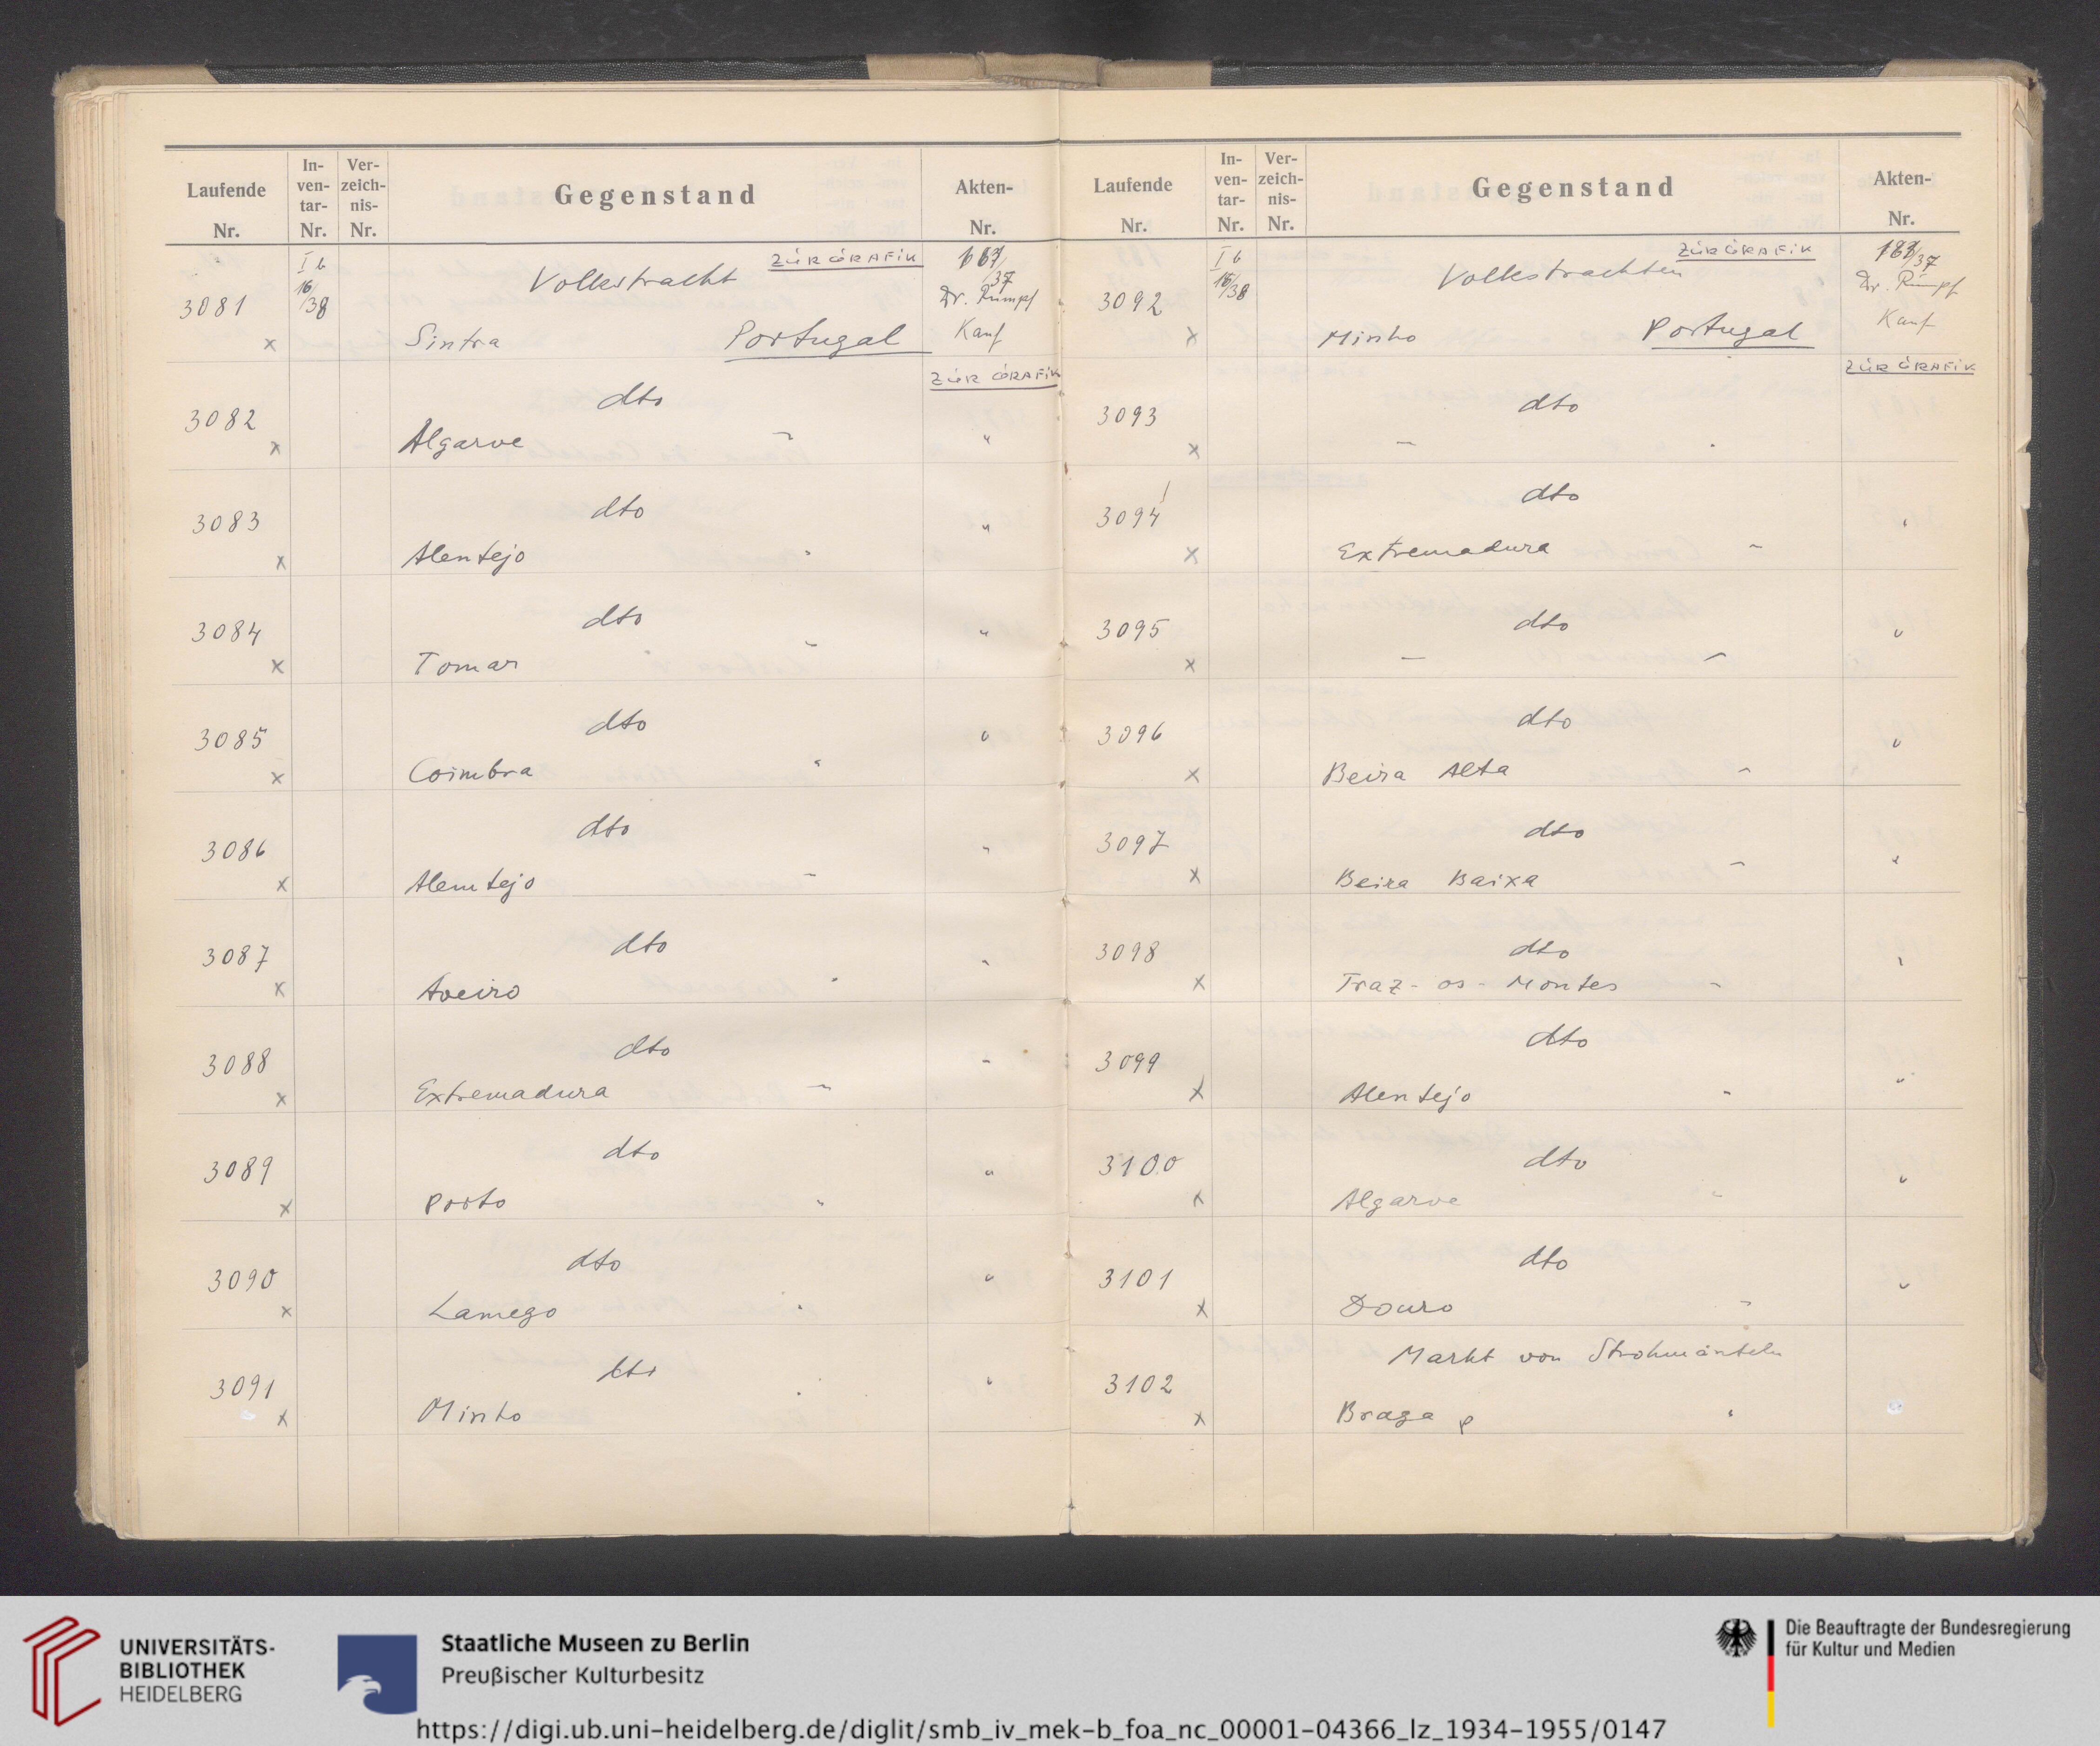 Laufende Nr. In-ven-tar-Nr. Ver-zeich-nis-Nr. Gegenstand Akten-Nr.
ZUR GRAFIK
I b 16/38 Volkstracht /37
3081 Dr. Rumpf
x Sintra Portugal Kauf
ZUR GRAFIK
3082 dto
x Algarve " "
3083 dto "
x Alentejo "
3084 dto "
x Tomar "
3085 dto "
x Coimbra "
3086 dto "
x Alemtejo "
3087 dto "
x Aveiro "
3088 dto "
x Extremadura "
3089 dto "
x Porto "
3090 dto "
x Lamego "
3091 dto "
x Minho "
Laufende Nr. In-ven-tar-Nr. Ver-zeich-nis-Nr. Gegenstand Akten-Nr.
ZUR GRAFIK
I b 16/38 Volkstrachten /37
3092 Dr. Rumpf
x Minho Portugal Kauf
ZUR GRAFIK
3093 dto
x " "
3094 dto "
x Extremadura "
3095 dto "
x " "
3096 dto "
x Beira Alta "
3097 dto "
x Beira Baixa "
3098 dto "
x Traz-os-Montes "
3099 dto "
x Alentejo "
3100 dto "
x Algarve "
3101 dto "
x Douro "
Markt von Strohmänteln
3102
x Braga "
UNIVERSITÄTS-
BIBLIOTHEK
HEIDELBERG
Staatliche Museen zu Berlin
Preußischer Kulturbesitz
Die Beauftragte der Bundesregierung
für Kultur und Medien
https://digi.ub.uni-heidelberg.de/diglit/smb_iv_mek-b_foa_nc_00001-04366_lz_1934-1955/0147